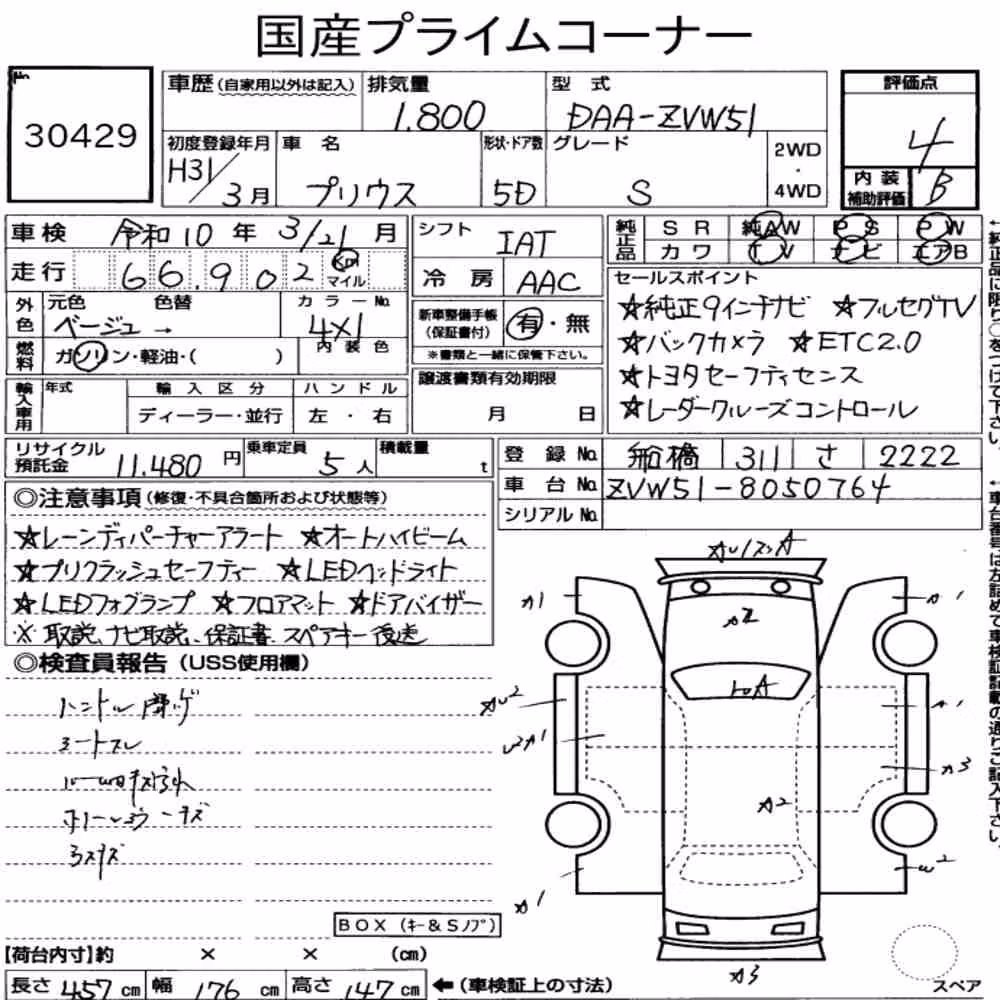 国産プライムコーナー
No. 30429
車歴 (自家用以外は記入) 排気量 1.800 型式 DAA-ZVW51
初度登録年月 H31/3月 車名 プリウス 形状・ドア数 5D グレード S 2WD・4WD
評価点 4
内装補助評価 B
車検 令和10年 3/21月
走行 66.902 Km マイル
外色 元色 ベージュ→ 色替 カラーNo. 4X1
燃料 ガソリン・軽油・( ) 内装色
輸入車用 年式 輸入区分 ディーラー・並行 ハンドル 左・右
シフト IAT
冷房 AAC
新車整備手帳(保証書付) 有・無
※書類と一緒に保管下さい。
譲渡書類有効期限 月 日
純正品 SR 純AW PS PW
カワ TV ナビ エアB
セールスポイント
☆純正9インチナビ ☆フルセグTV
☆バックカメラ ☆ETC2.0
☆トヨタセーフティセンス
☆レーダークルーズコントロール
←純正品に限り○をつけて下さい。
リサイクル預託金 11.480円 乗車定員 5人 積載量 t
登録No. 船橋 311 さ 2222
車台No. ZVW51-8050764
シリアルNo.
←車台番号は左詰めで車検証記載の通りご記入下さい。
◎注意事項(修復・不具合箇所および状態等)
☆レーンディパーチャーアラート ☆オートハイビーム
☆プリクラッシュセーフティー ☆LEDヘッドライト
☆LEDフォグランプ ☆フロアマット ☆ドアバイザー
※取説、ナビ取説、保証書、スペアキー後送
◎検査員報告(USS使用欄)
ハンドル
シートスレ
A1
A2
A1
A3
A2
W2
A1
A3
BOX(キー&Sノブ)
【荷台内寸】約 × × (cm)
長さ 457 cm 幅 176 cm 高さ 147 cm ←(車検証上の寸法)
スペア